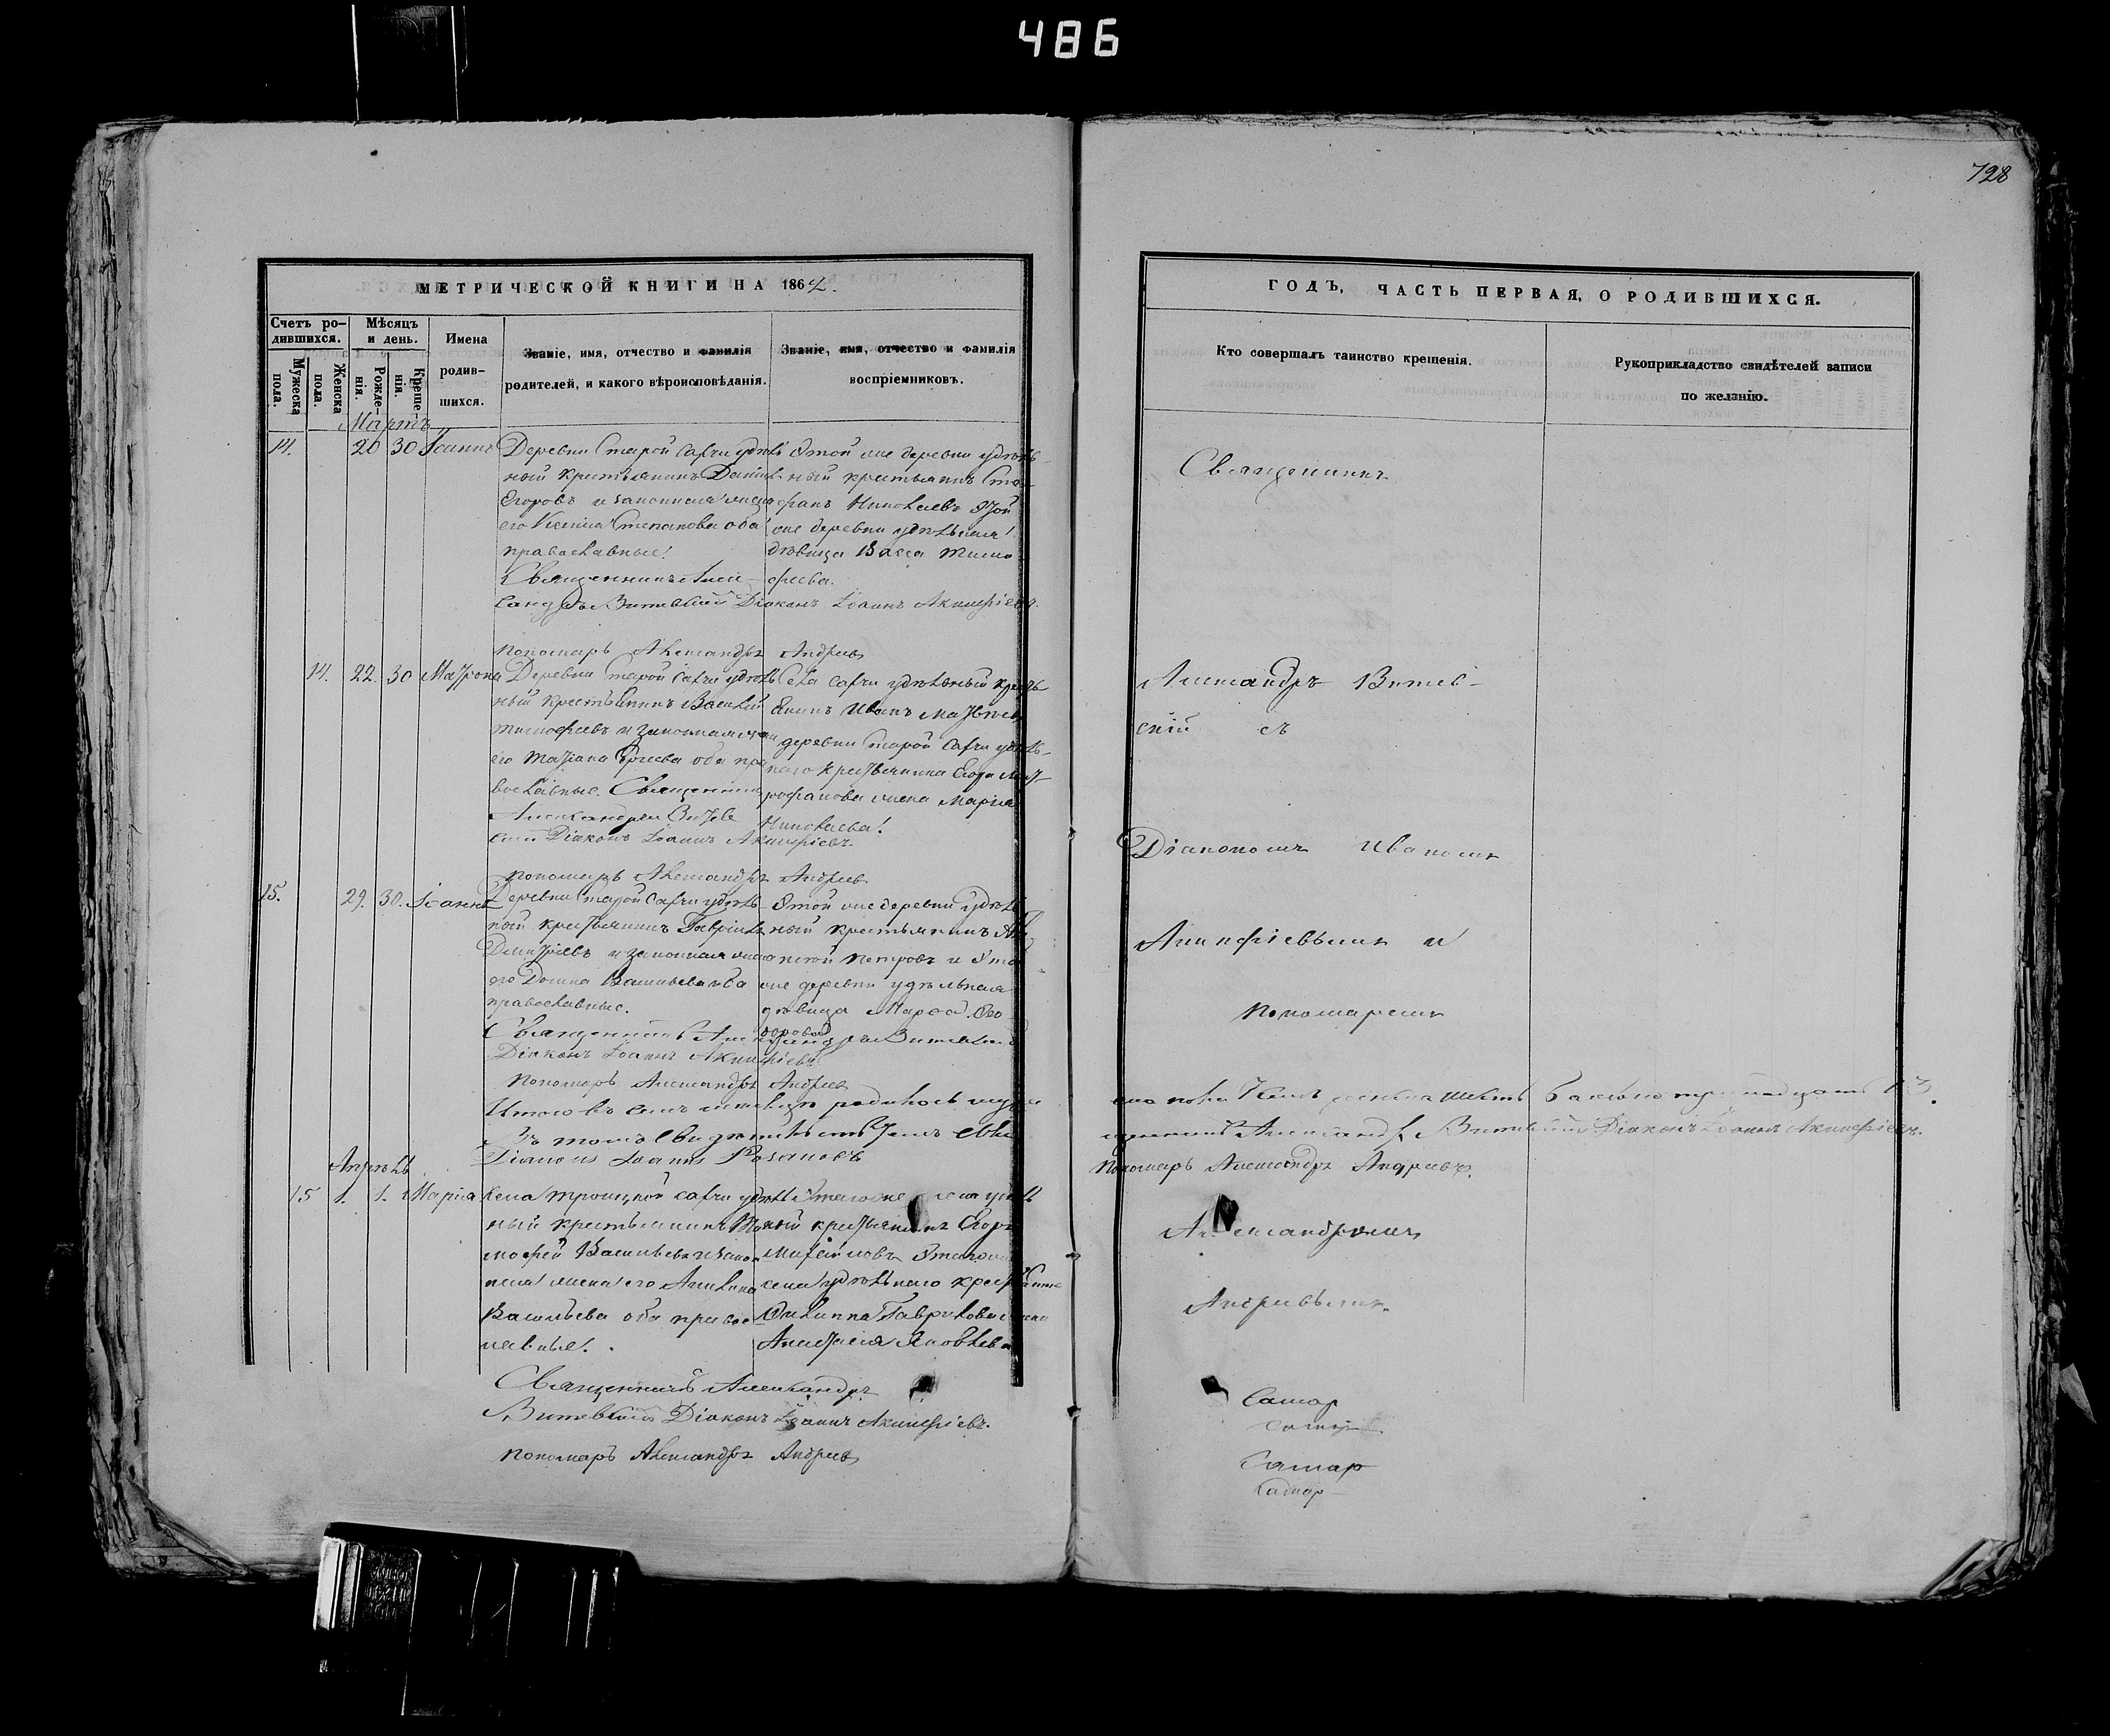 486
728
МЕТРИЧЕСКОЙ КНИГИ НА 1864.
Счетъ ро-
дившихся.
Мужеска
пола.
Женска
пола.
Мѣсяцъ
и день.
Рожде-
нія.
Креще-
нія.
Имена
родив-
шихся.
Званіе, имя, отчество и фамилія
родителей, и какого вѣроисповѣданія.
Званіе, имя, отчество и фамилія
воспріемниковъ.
Мартъ
14. 20 30 Іоаннъ
Деревни Старой Сахчи удѣль
ный крестьянинъ Даніилъ
Егоровъ и законная жена
его Ксенія Степанова оба
православные.
Священникъ Алек-
сандръ Витевскій Діаконъ Іоаннъ Акинфіевъ.
пономарь Александръ Андреевъ
Этой же деревни удѣль-
ный крестьянинъ Сте-
фанъ Николаевъ Этой
же деревни удѣльная
дѣвица Васса Тимо-
феева.
14. 22. 30 Матрона
Деревни Старой Сахчи удѣль
ный крестьянинъ Василій
Тимофеевъ и законная жена
его Татіана Сергеева оба пра
вославные. Священникъ
Александръ Витев
скій Діаконъ Іоаннъ Акинфіевъ.
пономарь Александръ Андреевъ
Села Сахчи удѣльный кресть
янинъ Иванъ Матвѣевъ
деревни Старой Сахчи удѣль-
наго крестьянина Егора Мит-
рофанова жена Марія
Николаева.
15. 29. 30. Іоаннъ
Деревни Старой Сахчи удѣль-
ный крестьянинъ Гавріилъ
Димитріевъ и законная жена
его Домна Васильева оба
православные.
Священникъ Александръ Витевскій
Діаконъ Іоаннъ Акинфіевъ
пономарь Александръ Андреевъ
Этой же деревни удѣль
ный крестьянинъ
Петровъ и Этой
же деревни удѣльная
дѣвица Марфа Ѳео-
дорова
Итого въ семъ мѣсяцѣ родилось муж
Въ томъ свидѣтельствуемъ Свя
Діаконъ Іоаннъ
Апрѣль
15 1. 1. Марія
Села Троицкой Сахчи удѣль
ный крестьянинъ Ти
мофей Васильевъ и закон
ная жена его Акилина
Васильева оба право
славные.
Священникъ Александръ
Витевскій Діаконъ Іоаннъ Акинфіевъ.
пономарь Александръ Андреевъ
Этого же села удѣль
ный крестьянинъ Егоръ
Михайловъ Этого же
села удѣльнаго крестьянина
Филиппа Гаврилова жена
Анастасія Яковлева
ГОДЪ, ЧАСТЬ ПЕРВАЯ, О РОДИВШИХСЯ.
Кто совершалъ таинство крещенія.
Рукоприкладство свидѣтелей записи
по желанію.
Священникъ
Александръ Витев-
скій съ
Діакономъ Иваномъ
Акинфіевымъ и
пономаремъ
щенникъ Александръ Витевскій Діаконъ Іоаннъ Акинфіевъ.
Пономарь Александръ Андреевъ.
Александромъ
Андреевымъ.
Самар
Самар
Самар
Самар